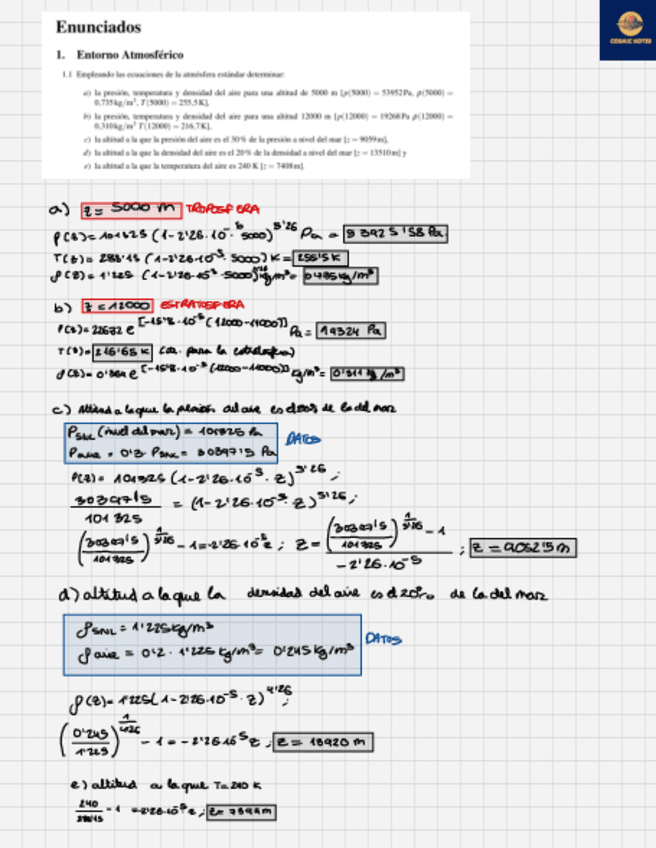 COSMIC NOTES
Enunciados
1. Entorno Atmosférico
1.1 Empleando las ecuaciones de la atmósfera estándar determinar:
a) la presión, temperatura y densidad del aire para una altitud de 5000 m [p(5000) = 53952Pa, ρ(5000) =
0,735kg/m³, T(5000) = 255,5K],
b) la presión, temperatura y densidad del aire para una altitud 12000 m [p(12000) = 19268Pa ρ(12000) =
0,310kg/m³ T(12000) = 216,7K],
c) la altitud a la que la presión del aire es el 30% de la presión a nivel del mar [z = 9059m],
d) la altitud a la que la densidad del aire es el 20% de la densidad a nivel del mar [z = 13510m] y
e) la altitud a la que la temperatura del aire es 240 K [z = 7408m].
a) z = 5000 m TROPOSFERA
P(z) = 101325 (1-2'26·10⁻⁵·5000)^5'26 Pa = 53925'58 Pa
T(z) = 288'15 (1-2'26·10⁻⁵·5000) K = 255'5 K
ρ(z) = 1'225 (1-2'26·10⁻⁵·5000)^4'26 kg/m³ =
b) z = 12000 ESTRATOSFERA
P(z) = 22632 e^[-15'8·10⁻⁵(12000-11000)] Pa = 19324 Pa
T(z) = 216'65 K (cte. para la estratosfera)
ρ(z) = 0'364 e^[-15'8·10⁻⁵(12000-11000)] kg/m³ = 0'311 kg/m³
c) Altitud a la que la presión del aire es el 30% de la del mar
P_SNL (nivel del mar) = 101325 Pa
P_aire = 0'3 · P_SNL = 30397'5 Pa DATOS
P(z) = 101325 (1-2'26·10⁻⁵·z)^5'26 ;
30397'5 / 101325 = (1-2'26·10⁻⁵·z)^5'26 ;
(30397'5 / 101325)^(1/5'26) - 1 = -2'26·10⁻⁵z ; z = ((30397'5 / 101325)^(1/5'26) - 1) / (-2'26·10⁻⁵) ; z = 9052'5 m
d) altitud a la que la densidad del aire es el 20% de la del mar
ρ_SNL = 1'225 kg/m³
ρ aire = 0'2 · 1'225 kg/m³ = 0'245 kg/m³ DATOS
ρ(z) = 1'225 (1-2'26·10⁻⁵·z)^4'26 ;
(0'245 / 1'225)^(1/4'26) - 1 = -2'26·10⁻⁵z ; z =
e) altitud a la que T = 240 K
240 / 288'15 - 1 = -2'26·10⁻⁵z ; z =